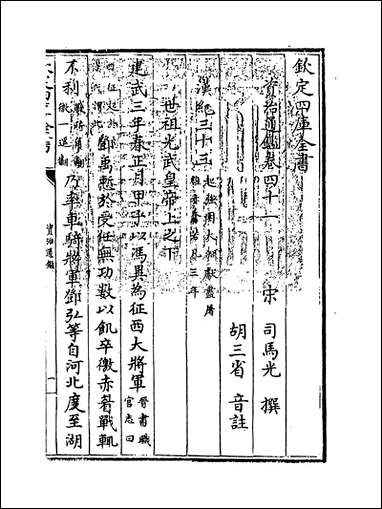 欽定四庫全書
資治通鑑卷四十一
宋 司馬光 撰
胡三省 音註
漢紀三十三 起強圉大淵獻盡屠維赤奮若凡三年
世祖光武皇帝上之下
建武三年春正月甲子以馮異為征西大將軍 晉書職官志曰
鄧禹慙於受任無功數以飢卒徼赤眉戰輒
不利 數所角翻徼一遥翻 乃率車騎將軍鄧弘等自河北度至湖
資治通鑑
一